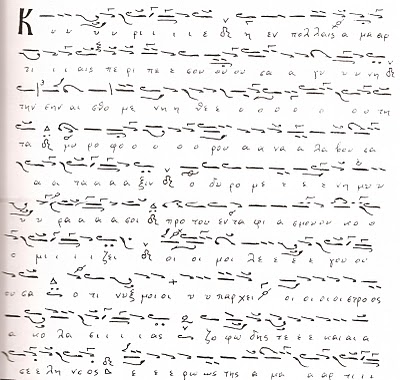 Κ υ υ υ ρι ι ι ι ε η εν πολλαις α μα αρ
τι ι ι αις πε ρι πε ε σου ου ου σα α γυ υ υ νη
την σην αι σθο με νη η θε ε ο ο ο ο ου τη
τα μυ ρο φο ο ο ο ο ρου α α να α λα βου σα
α αι τα α α α ξιν ο δυ ρο με ε ε ε νη μυ υ
υ υ ρα α α α σοι προ του εν τα φι α σμου ου κο ο
ο μι ι ι ι ζει οι οι μοι λε ε ε ε γου ου
ου σα ο τι νυξ μοι οι υ υ παρ χει οι οι οι οι οι στρο ος
α κο λα σι ι ι ι ας ζο φω δης τε ε ε και αι α
σε ε λη νο ος ε ε ε ρω ως της α μα α αρ τι ι ι